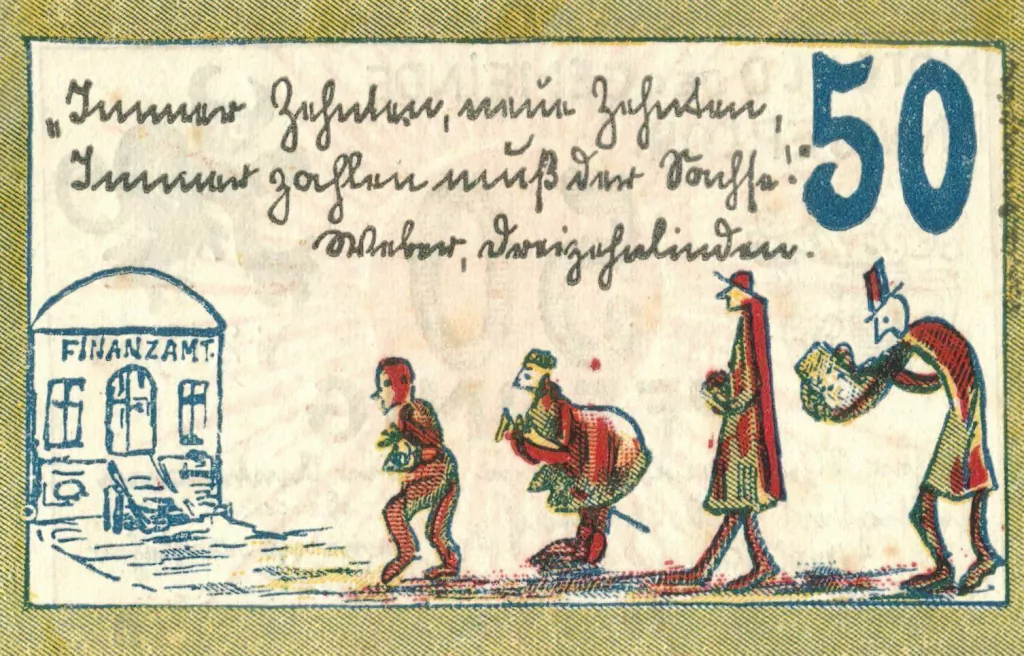 „Immer Zehnten, neue Zehnten,
Immer zahlen muß der Sachse!“
Weber, Dreizehnlinden.
50
FINANZAMT.